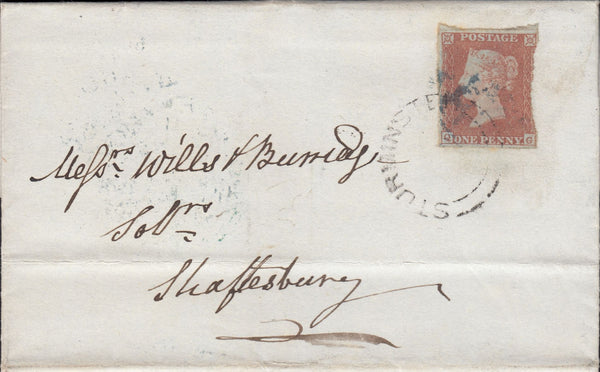 POSTAGE
ONE PENNY
STURMINSTE
Messrs. Wills & Burridge
Solrs
Shaftesbury